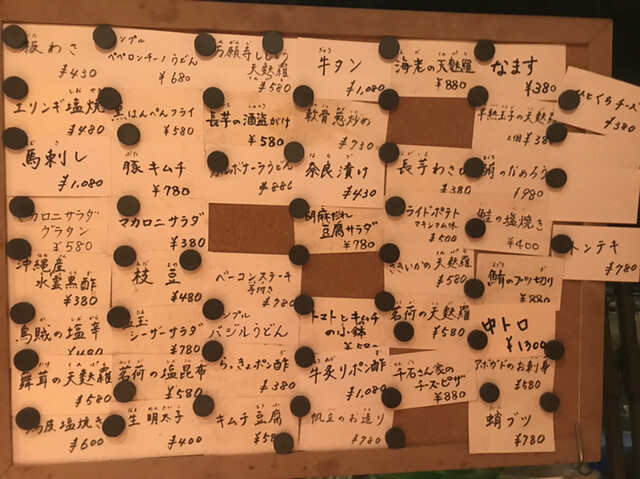 板わさ
¥430
ペペロンチーノうどん
¥680
万願寺ししとう
天麩羅
¥580
牛タン
¥1,080
海老の天麩羅
¥880
なます
¥380
エリンギ塩焼
¥480
黒はんぺんフライ
¥580
長芋の酒盗がけ
¥580
軟骨葱炒め
¥730
半熟玉子の天麩羅
¥380
チーズ
¥380
馬刺し
¥1,080
豚キムチ
¥780
カルボナーラうどん
¥880
奈良漬け
¥430
長芋わさび
¥380
のなめろう
¥980
マカロニサラダ
グラタン
¥580
マカロニサラダ
¥380
胡麻だれ
豆腐サラダ
¥780
フライドポテト
マキシマム味
¥500
鮭の塩焼き
¥400
トンテキ
¥780
沖縄産
水雲黒酢
¥380
枝豆
¥480
ベーコンステーキ
¥780
さきいかの天麩羅
¥580
鮪のブツ切り
¥880
烏賊の塩辛
¥480
シーザーサラダ
¥780
シンプル
バジルうどん
トマトとキムチ
の小鉢
茗荷の天麩羅
¥580
中トロ
¥1300
舞茸の天麩羅
¥580
茗荷の塩昆布
¥580
らっきょポン酢
¥380
牛炙りポン酢
¥1,080
千石さん家の
チーズピザ
¥880
アボガドのお刺身
¥580
鶏皮塩焼き
¥600
生明太子
¥400
キムチ豆腐
帆立のお造り
¥780
蛸ブツ
¥780